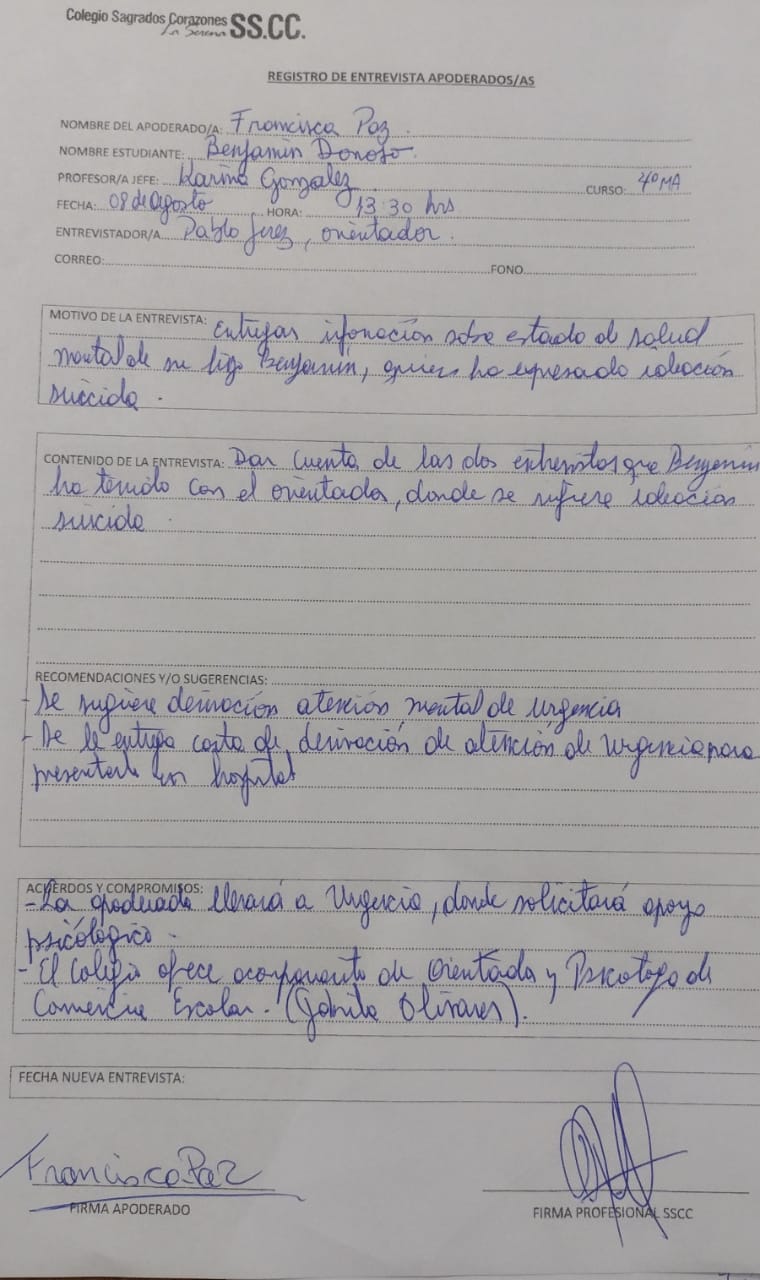 Colegio Sagrados Corazones SS.CC.
La Serena
REGISTRO DE ENTREVISTA APODERADOS/AS
NOMBRE DEL APODERADO/A: Francisca Paz.
NOMBRE ESTUDIANTE: Benjamín Donoso.
PROFESOR/A JEFE: Karina Gonzalez CURSO: 4º MA
FECHA: 08 de Agosto HORA: 13:30 hrs
ENTREVISTADOR/A Pablo Jerez, orientador.
CORREO: FONO
MOTIVO DE LA ENTREVISTA: Entregar información sobre estado de salud
mental de su hijo Benjamín, quien ha expresado ideación
suicida.
CONTENIDO DE LA ENTREVISTA: Dar cuenta de las dos entrevistas que Benjamin
ha tenido con el orientador, donde se refiere ideación
suicida.
RECOMENDACIONES Y/O SUGERENCIAS:
- Se sugiere derivación atención mental de urgencia
- Se le entrega carta de derivación de atención de urgencia para
presentarla en hospital
ACUERDOS Y COMPROMISOS:
- La apoderada llevará a Urgencia, donde solicitará apoyo
psicológico.
- El Colegio ofrece de Orientador y Psicologo de
Escolar. ( Olivares).
FECHA NUEVA ENTREVISTA:
Francisca Paz
FIRMA APODERADO FIRMA PROFESIONAL SSCC